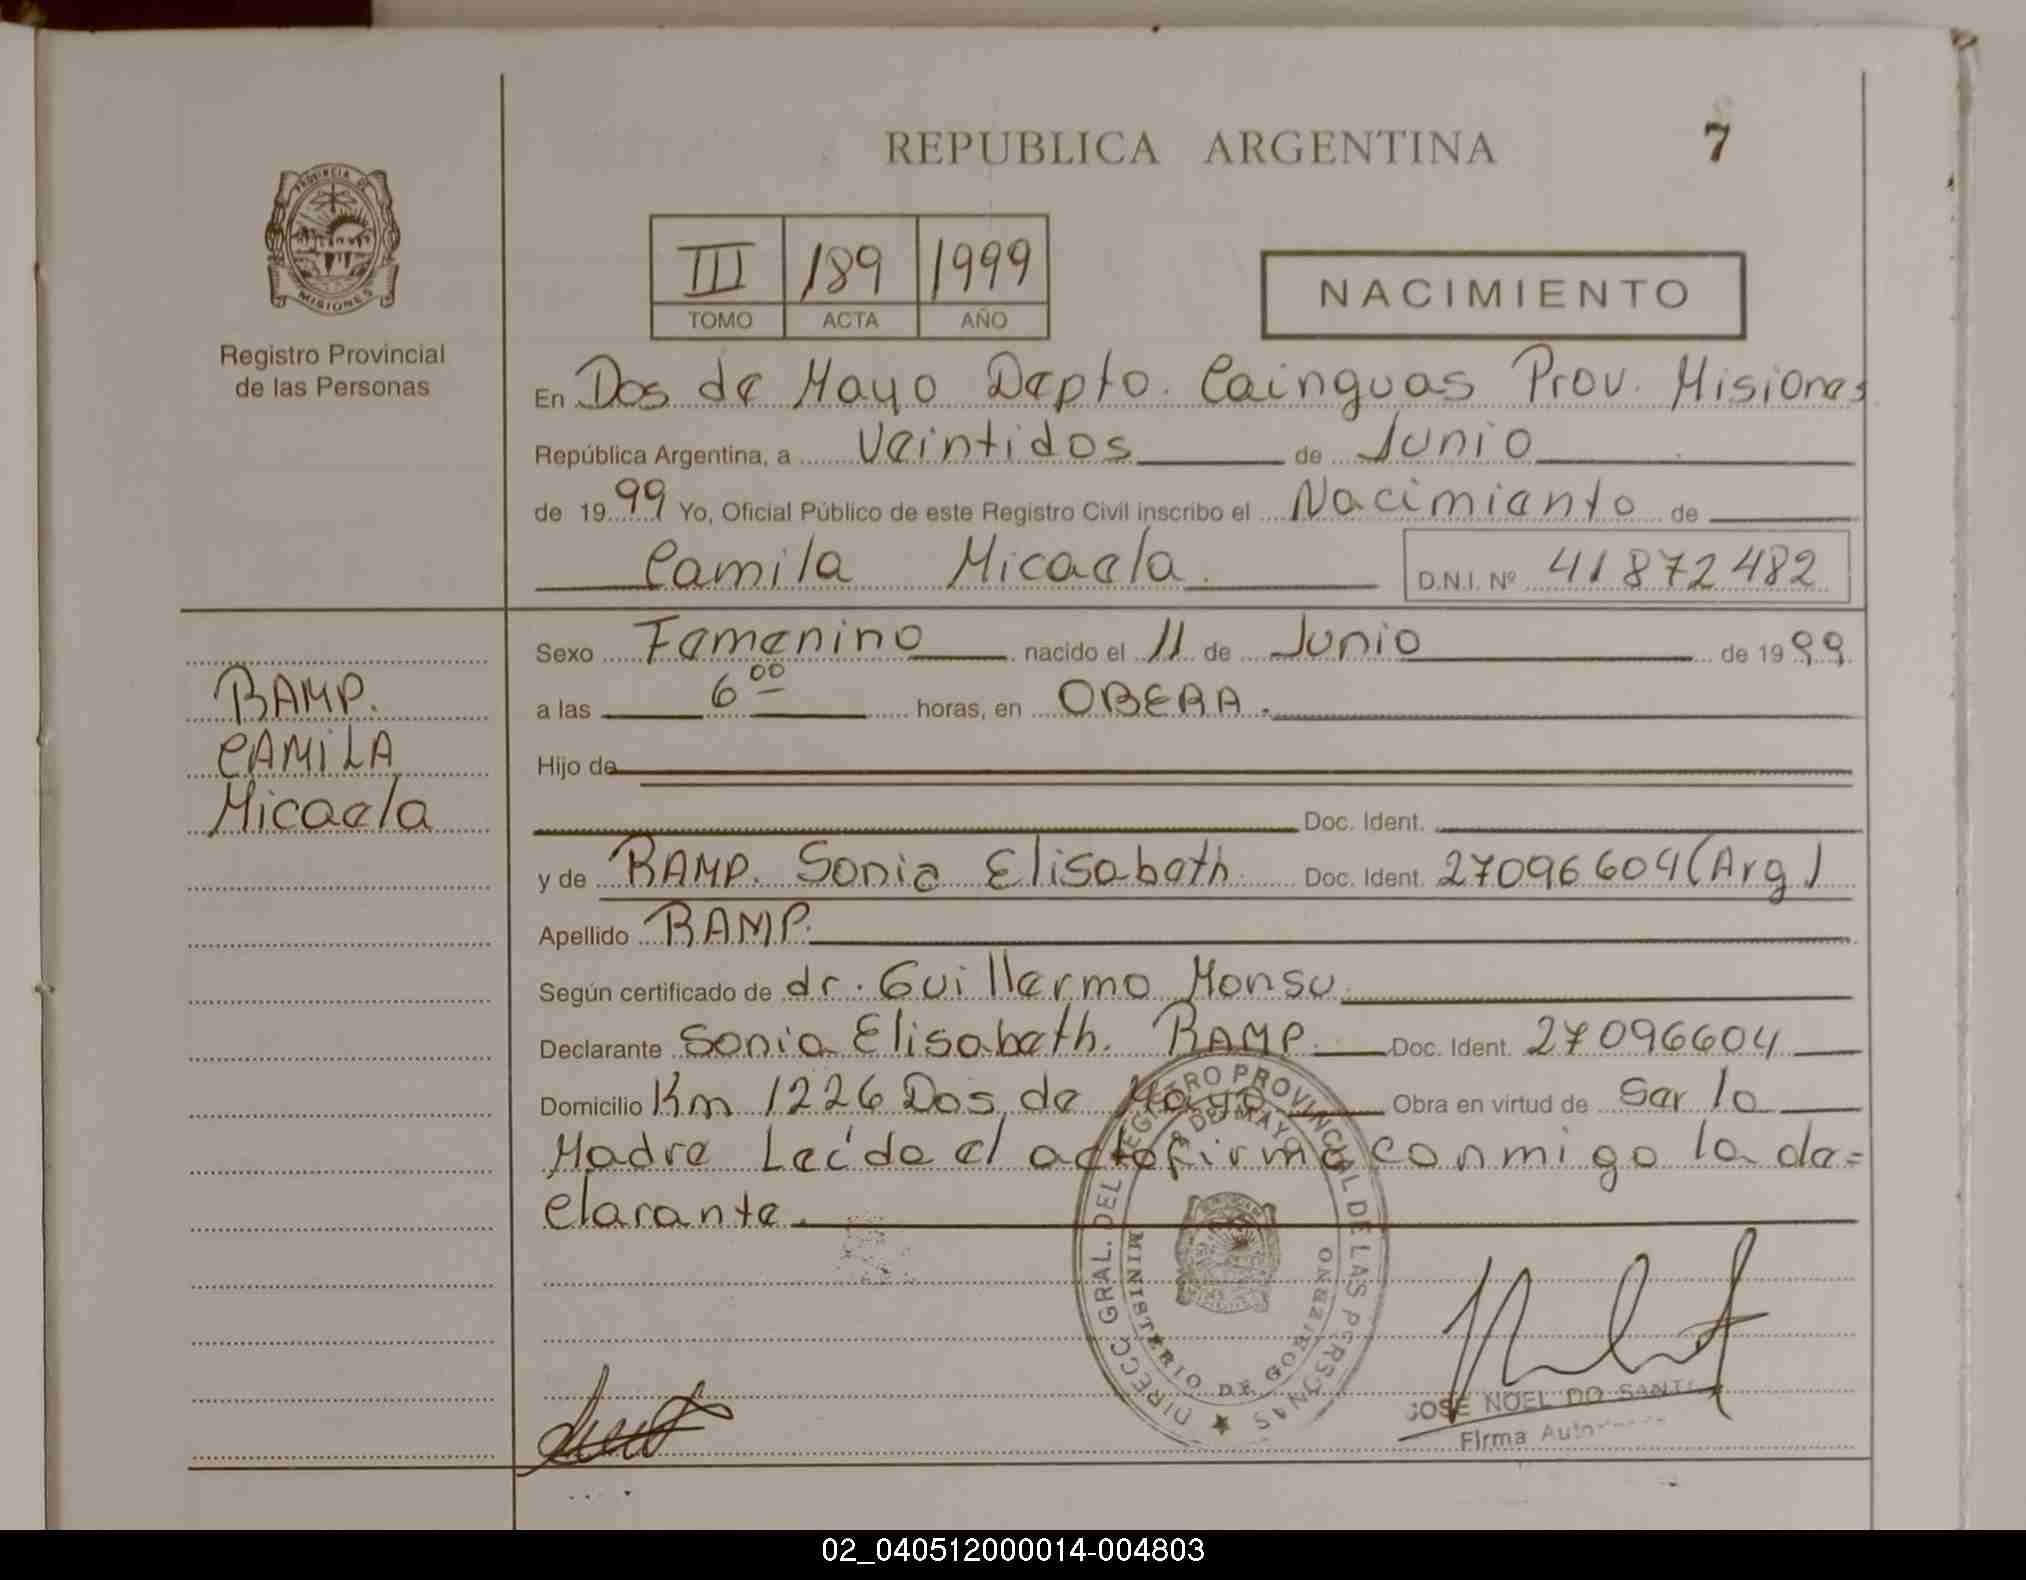 REPUBLICA ARGENTINA
7
PROVINCIA DE
MISIONES
Registro Provincial
de las Personas
III 189 1999
TOMO ACTA AÑO
NACIMIENTO
En Dos de Mayo Depto. Cainguas Prov. Misiones
República Argentina, a Veintidos de Junio
de 1999 Yo, Oficial Público de este Registro Civil inscribo el Nacimiento de
Camila Micaela. D.N.I. Nº 41872482
Sexo Femenino nacido el 11 de Junio de 1999
a las 6 00 horas, en OBERA.
Hijo de
Doc. Ident.
y de RAMP. Sonia Elisabeth. Doc. Ident. 27096604 (Arg)
Apellido RAMP.
Según certificado de dr. Guillermo Monsu
Declarante Sonia Elisabeth. RAMP. Doc. Ident. 27096604
Domicilio Km 1226 Dos de Mayo Obra en virtud de Ser la
Madre Leída el acto firma conmigo la de=
clarante.
RAMP.
CAMILA
Micaela
DIRECC GRAL. DEL REGISTRO PROVINCIAL DE LAS PERSONAS
DE MAYO
MINISTERIO DE GOBIERNO
JOSE NOEL DO
Firma
02_040512000014-004803